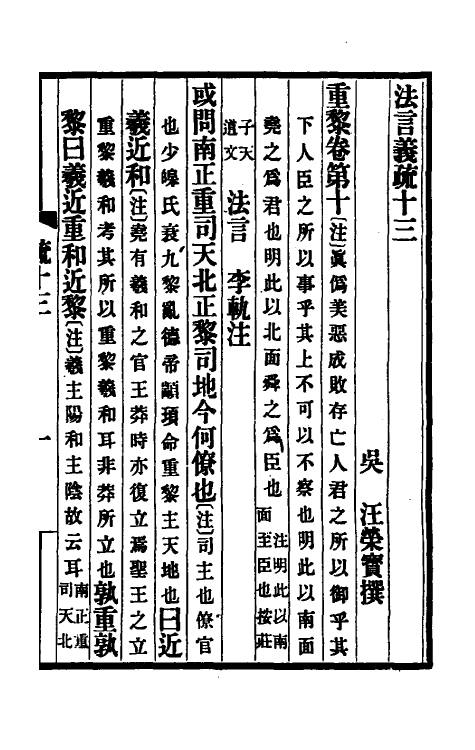 法言義疏十三
吳 汪榮寶撰
重黎卷第十〔注〕眞僞美惡成敗存亡人君之所以御乎其
下人臣之所以事乎其上不可以不察也明此以南面
堯之爲君也明此以北面舜之爲臣也注明此以南
面至臣也按莊
子天
道文 法言 李軌注
或問南正重司天北正黎司地今何僚也〔注〕司主也僚官
也少皞氏衰九黎亂德帝顓頊命重黎主天地也曰近
羲近和〔注〕堯有羲和之官王莽時亦復立焉聖王之立
重黎羲和考其所以重黎羲和耳非莽所立也孰重孰
黎曰羲近重和近黎〔注〕羲主陽和主陰故云耳南正重
司天北
疏十三
一